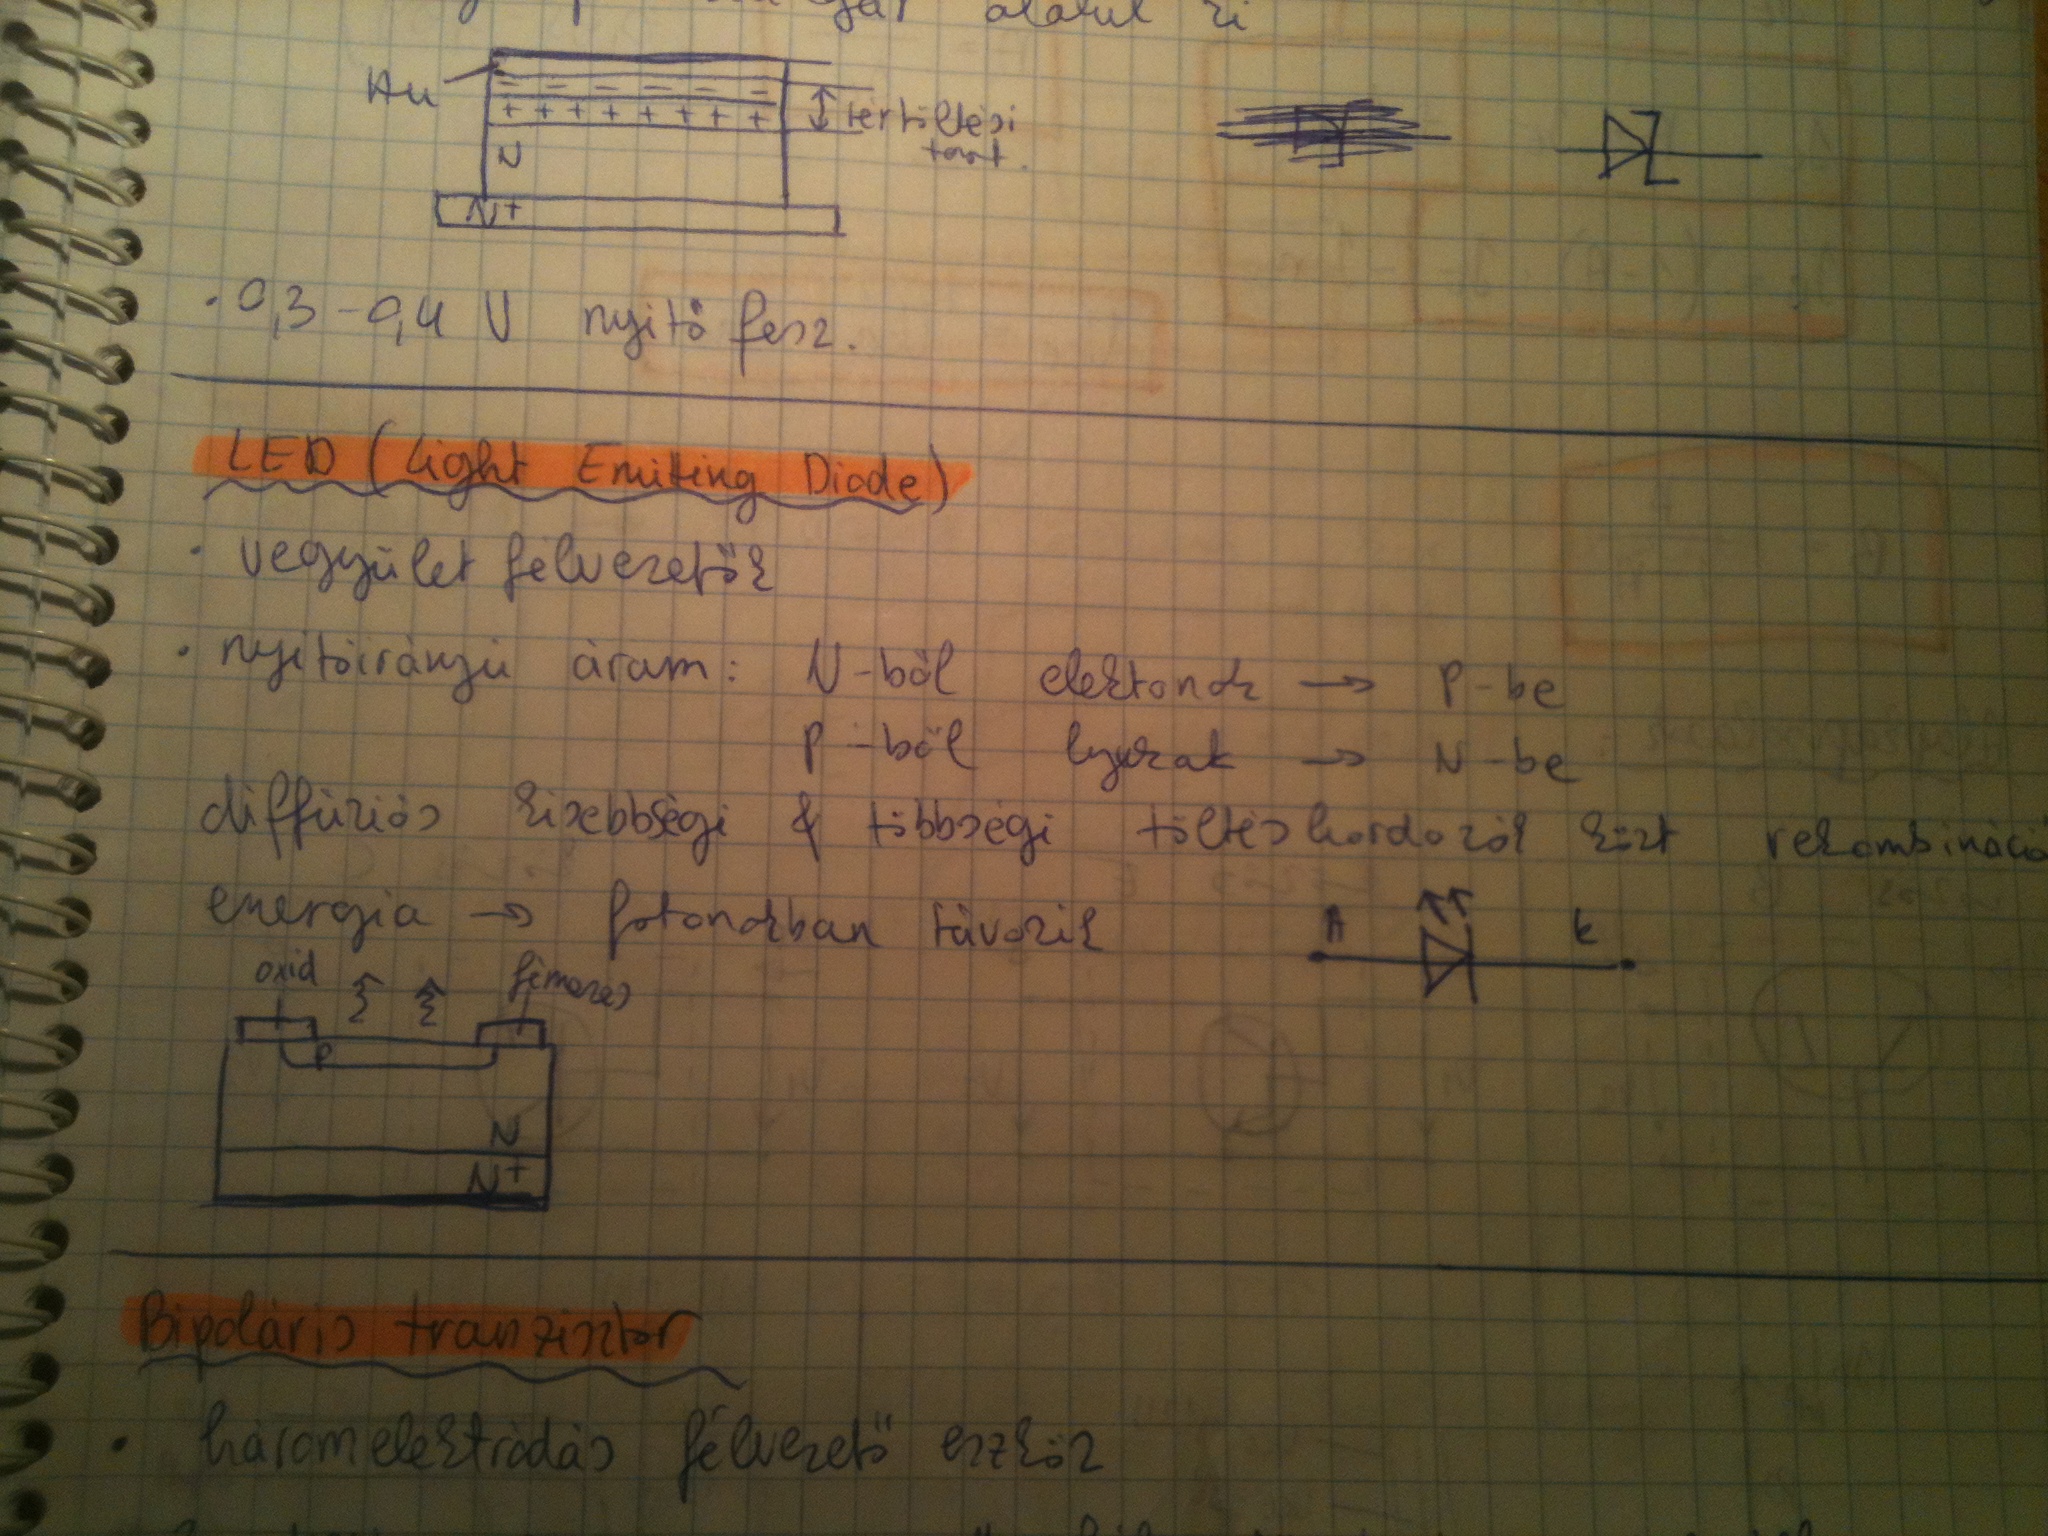 alakul ki
Au
N
N+
kiürítési
tart.
· 0,3-0,4 V nyitó fesz.
LED (Light Emiting Diode)
· vegyület félvezetők
· nyitóirányú áram: N-ből elektonok → P-be
P-ből lyukak → N-be
diffúziós kisebbségi & többségi töltéshordozók közt rekombináció
energia → fotonokban távozik
A K
oxid fémezés
P
N
N+
Bipoláris tranzisztor
· háromelektródás félvezető eszköz